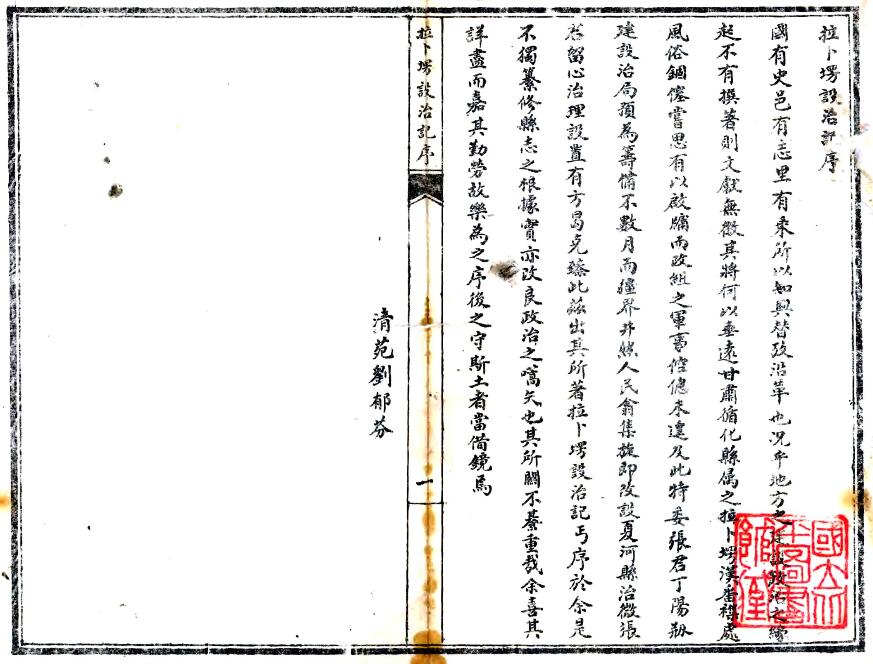 拉卜塄設治記序
國有史邑有志里有乘所以知興替攷沿革也況乎地方之建設政治之緣
起不有撰著則文獻無徵其將何以垂遠甘肅循化縣屬之拉卜塄漢番襍處
風俗錮僿嘗思有以啟牖而改組之軍事倥傯未遑及此特委張君丁陽剙
建設治局預為籌備不數月而疆界井然人民翕集旋即改設夏河縣治微張
君留心治理設置有方曷克臻此茲出其所著拉卜塄設治記丐序於余是
不獨纂修縣志之根據實亦改良政治之嚆矢也其所關不綦重哉余喜其
詳盡而嘉其勤勞故樂為之序後之守斯土者當借鏡焉
清苑劉郁芬
拉卜塄設治記序
一
國立
圖書
館